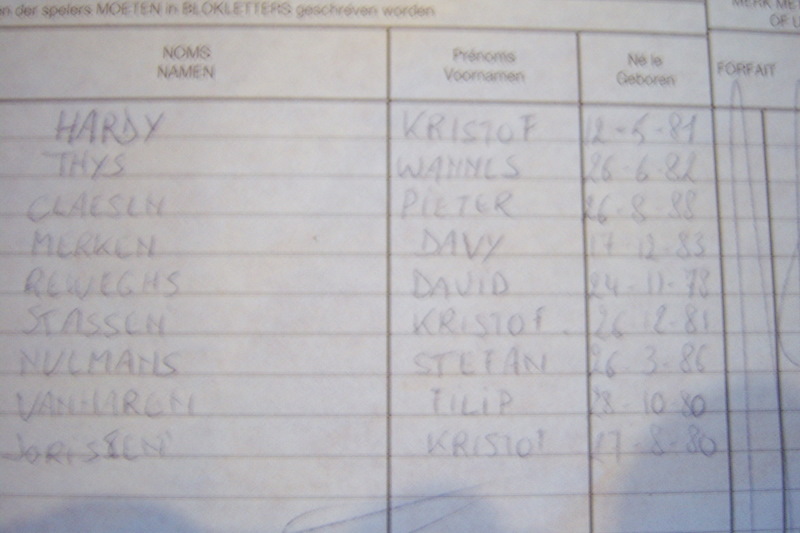 der spelers MOETEN in BLOKLETTERS geschreven worden
NOMS Prénoms Né le
NAMEN Voornamen Geboren FORFAIT
HARDY KRISTOF 12-5-81
THYS WANNES 26-6-82
CLAESEN PIETER 26-8-88
MERKEN DAVY 17-12-83
REWEGHS DAVID 24-11-78
STASSEN KRISTOF 26-12-81
NULMANS STEFAN 26-3-86
VANHAREN FILIP 28-10-80
JORISSEN KRISTOF 17-8-80